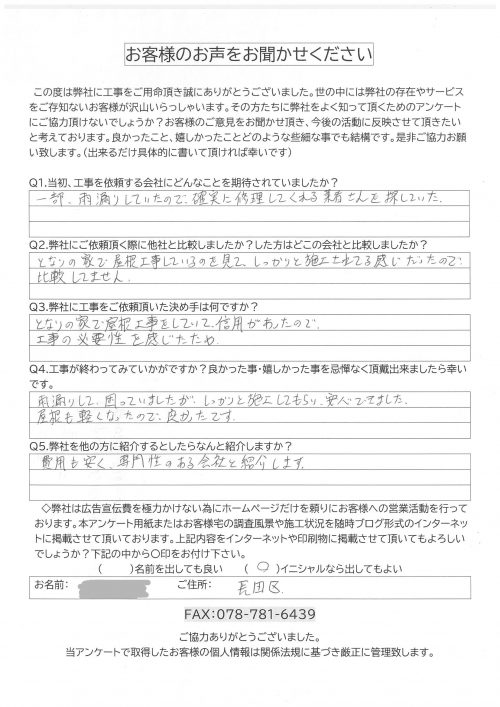 お客様のお声をお聞かせください
この度は弊社に工事をご用命頂き誠にありがとうございました。世の中には弊社の存在やサービス
をご存知ないお客様が沢山いらっしゃいます。その方たちに弊社をよく知って頂くためのアンケート
にご協力頂けないでしょうか?お客様のご意見をお聞かせ頂き、今後の活動に反映させて頂きたい
と考えております。良かったこと、嬉しかったことどのような些細な事でも結構です。是非ご協力お願
い致します。(出来るだけ具体的に書いて頂ければ幸いです)
Q1.当初、工事を依頼する会社にどんなことを期待されていましたか?
一部、雨漏りしていたので、確実に修理してくれる業者さんを探していた。
Q2.弊社にご依頼頂く際に他社と比較しましたか?した方はどこの会社と比較しましたか?
となりの家で屋根工事しているのを見て、しっかりと施工されてる感じだったので、
比較してません。
Q3.弊社に工事をご依頼頂いた決め手は何ですか?
となりの家で屋根工事をしていて、信用があったので。
工事の必要性を感じたため
Q4.工事が終わってみていかがですか?良かった事・嬉しかった事を忌憚なく頂戴出来ましたら幸い
です。
雨漏りして、困っていましたが、しっかりと施工してもらい、安心できました。
屋根も軽くなったので、良かったです。
Q5.弊社を他の方に紹介するとしたらなんと紹介しますか?
費用も安く、専門性のある会社と紹介します。
◇弊社は広告宣伝費を極力かけない為にホームページだけを頼りにお客様への営業活動を行って
おります。本アンケート用紙またはお客様宅の調査風景や施工状況を随時ブログ形式のインターネッ
トに掲載させて頂いております。上記内容をインターネットや印刷物に掲載させて頂いてもよろしい
でしょうか?下記の中から〇印をお付け下さい。
( )名前を出しても良い (○)イニシャルなら出してもよい
お名前: ご住所: 長田区
FAX:078-781-6439
ご協力ありがとうございました。
当アンケートで取得したお客様の個人情報は関係法規に基づき厳正に管理致します。